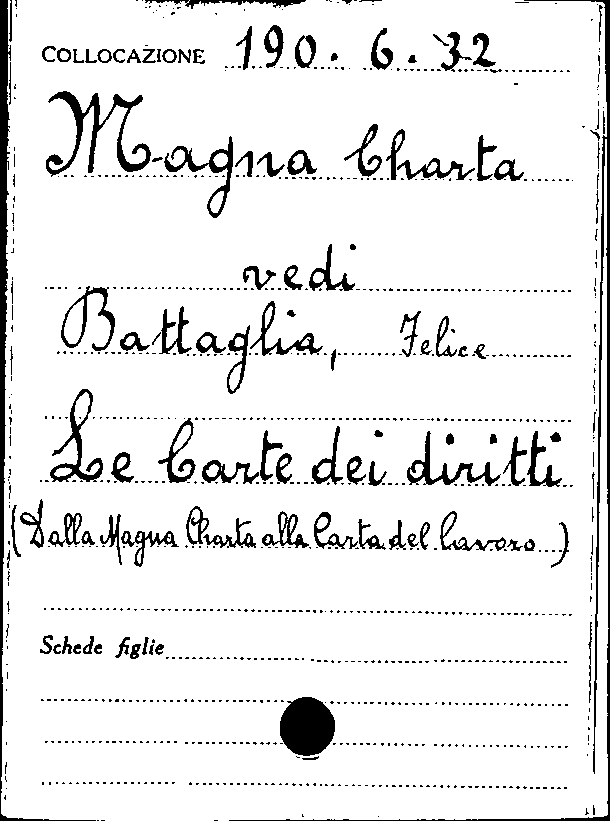 COLLOCAZIONE 190. 6. 32
Magna Charta
vedi
Battaglia, Felice
Le Carte dei diritti
(Dalla Magna Charta alla Carta del lavoro)
Schede figlie